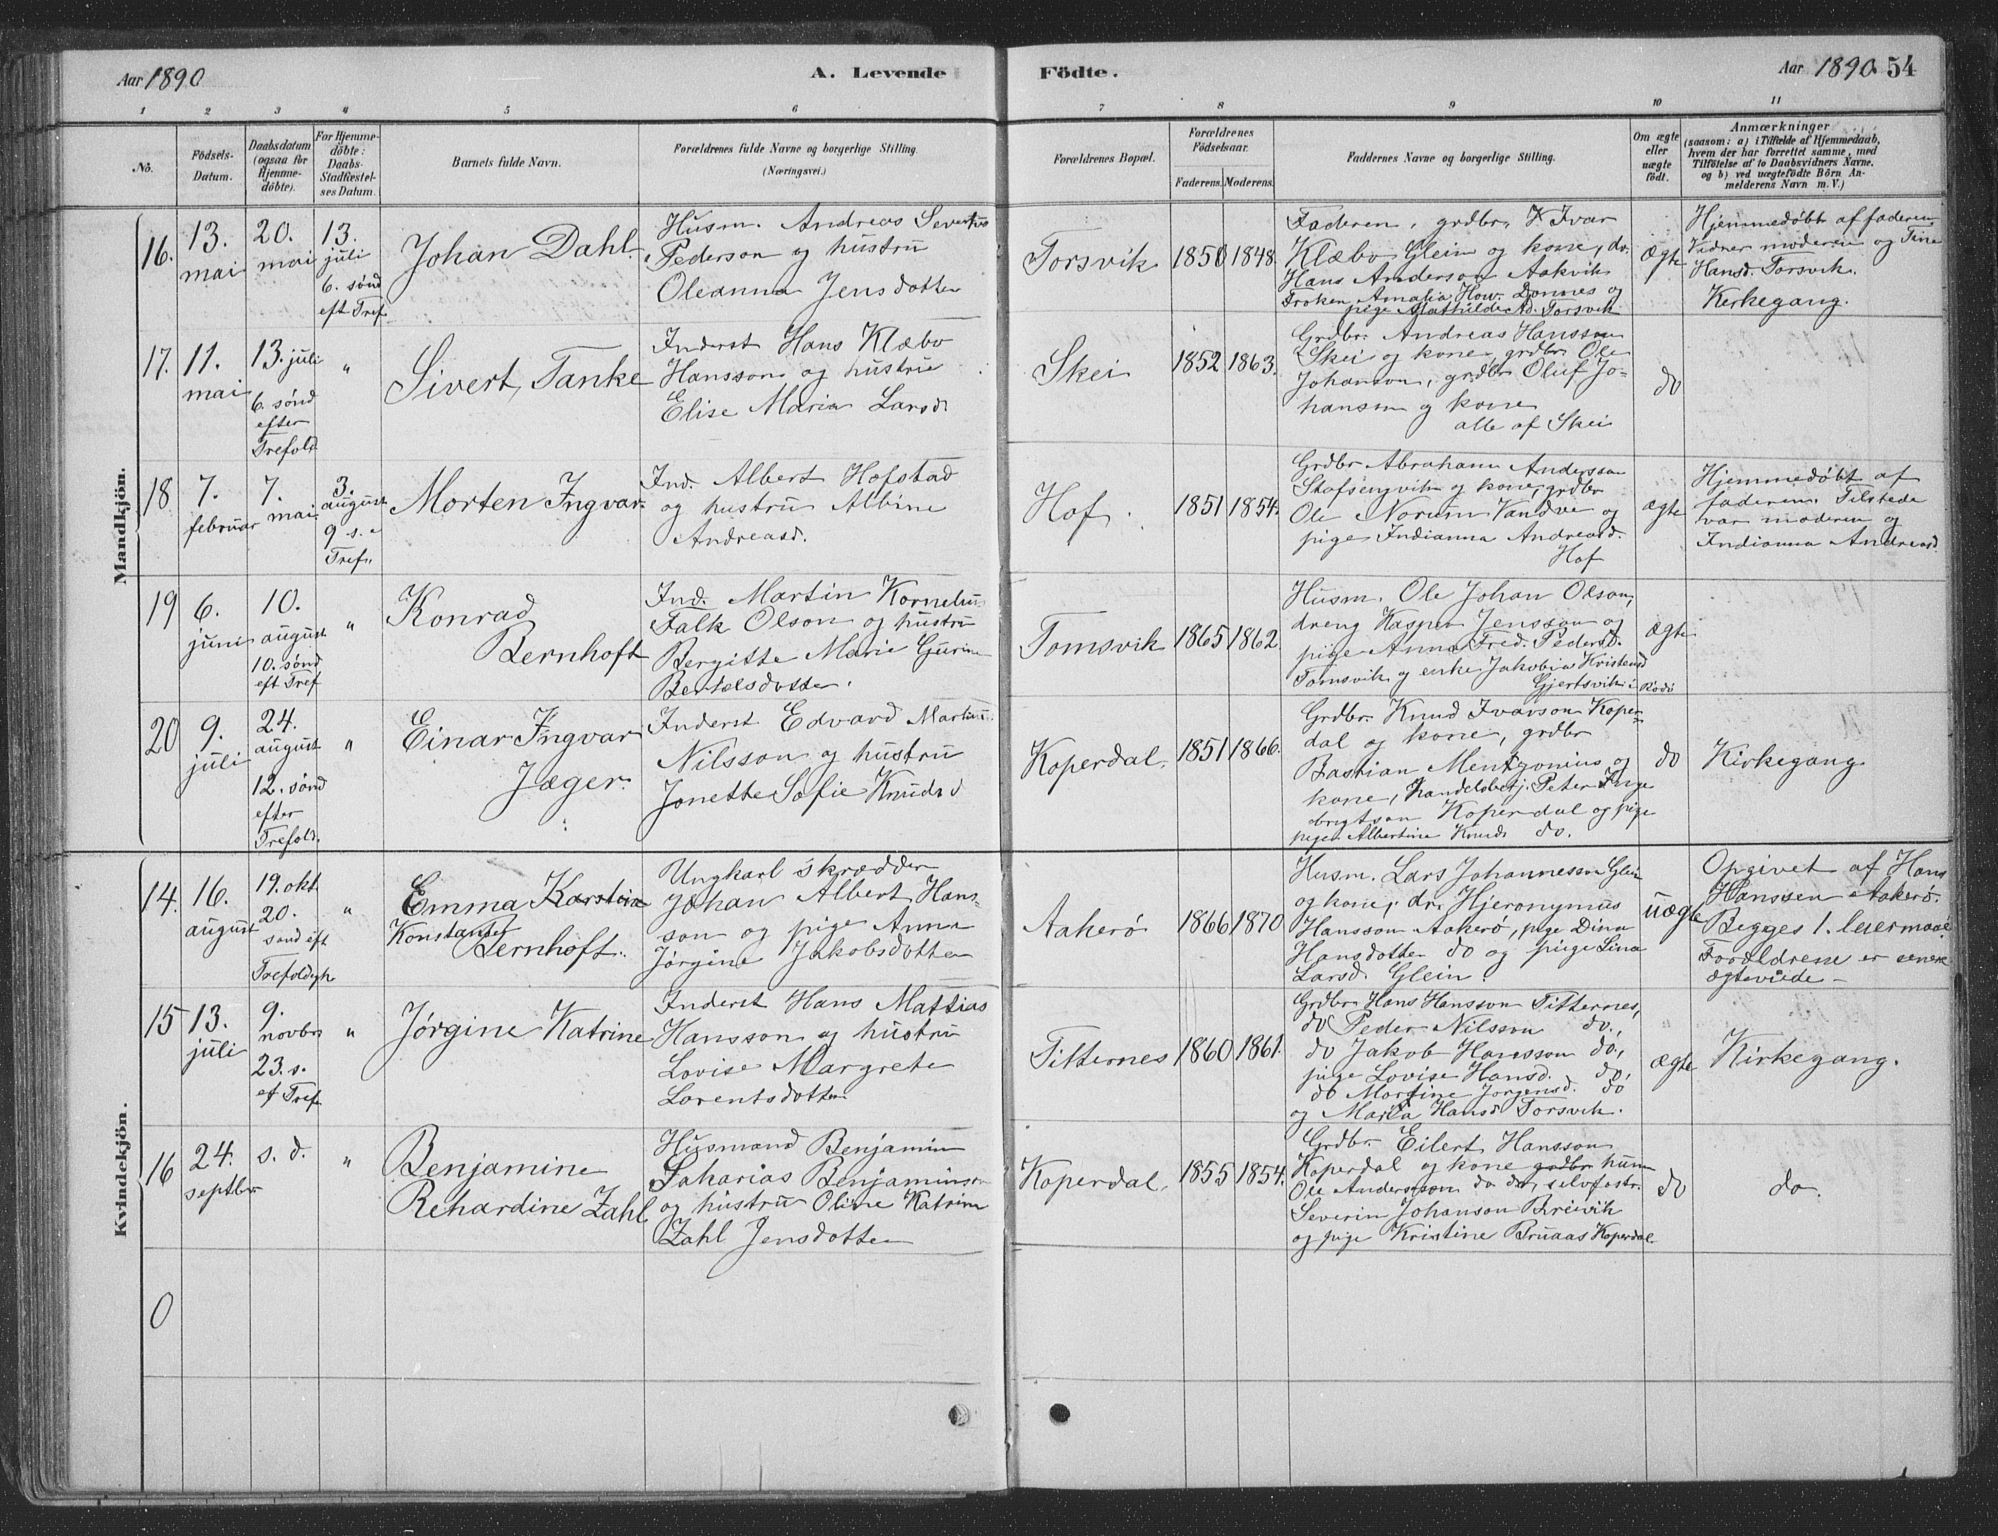 Aar 1890
A. Levende
Födte.
Aar 1890. 54
1 2 3 4 5 6 7 8 9 10 11
No.
Födsels-
Datum.
Daabsdatum
(ogsaa for
Hjemme-
döbte).
For Hjemme-
döbte:
Daabs-
Stadfæstel-
ses Datum.
Barnets fulde Navn.
Forældrenes fulde Navne og borgerlige Stilling.
(Næringsvei.)
Forældrenes Bopæl.
Forældrenes
Födselsaar.
Faderens. Moderens.
Faddernes Navne og borgerlige Stilling.
Om ægte
eller
uægte
födt.
Anmærkninger
(saasom: a) i Tilfælde af Hjemmedaab,
hvem der har forrettet samme, med
Tilföielse af to Daabsvidners Navne,
og b) ved uægtefödte Börn An-
melderens Navn m. V.)
Mandkjön.
16.
13.
mai
20.
mai
13.
juli
6. sønd
eft Tref.
Johan Dahl.
Husm. Andreas Severtus
Pederson og hustru
Oleanna Jensdotter
Torsvik
1850
1848.
Faderen, grdbr. Ivar
Klæbo Glein og kone, do.
Hans Anderson Aakvik
Frøken Amalia How. Dønnes og
pige Mathilde Ad. Torsvik
ægte
Hjemmedøbt af faderen
Vidner moderen og Tine
Hansd. Torsvik.
Kirkegang.
17.
11.
mai
13. juli
6. sønd
efter
Trefold.
"
Sivert Tanke
Inderst Hans Klæbo
Hansson og hustru
Elise Maria Larsd.
Skei
1852
1863.
Grdbr. Andreas Hansson
Skei og kone, grdbr. Ole
Johanson, grdbr Oluf Jo-
hanson og kone
alle af Skei
do
18
7.
februar
7.
mai
3.
august
9 s. e
Tref.
Morten Ingvar.
Ind. Albert Hofstad
og hustru Albine
Andreasd.
Hof.
1851
1854.
Grdbr Abraham Andersson
og kone, grdbr
Ole Norum Vandve og
pige Indianna Andreasd.
Hof
ægte
Hjemmedøbt af
faderen. Tilstede
var moderen og
Indianna Andreasd.
19
6.
juni
10.
august
10. sønd
eft Tref
"
Konrad
Bernhoft
Ind. Martin Kornelius
Falk Olson og hustru
Bergitte Marie Gurine
Bertelsdotter.
Tomsvik
1865
1862
Husm. Ole Johan Olson,
dreng Kasper Jensson og
pige Anna Fred. Pedersd.
Tomsvik og enke Jakobia Kristensd
Gjertsvik i Rødø
ægte
20
9.
juli
24.
august
12. sønd
efter
Trefold.
"
Einar Ingvar
Jæger.
Inderst Edvard Martin
Nilsson og hustru
Jonette Sofie Knudsd
Koperdal.
1851
1866.
Grdbr. Knud Ivarson Koper-
dal og kone, grdbr
Bastian Mentzonius og
kone, handelsbetj. Peter Inge-
brigtson Koperdal og pige
pige Albertine Knuds do.
do
Kirkegang
Kvindekjön.
14.
16.
august
19. okt.
20.
sønd eft
Trefoldigh
"
Emma Karstine
Konstanse
Bernhoft.
Ungkarl skrædder
Johan Albert Hans-
son og pige Anna
Jørgine Jakobsdotter
Aakerø
1866
1870
Husm. Lars Johannesson Glein
og kone, dr. Hjeronymus
Hansson Aakerø, pige Dina
Hansdotter do og pige Lina
Larsd. Glein.
uægte
Opgivet af Hans
Hanssen Aakerø.
Begges 1. leiermaal
Forældrene er senere
ægteviede -
15
13.
juli
9.
novbr
23. s.
ef Tref
"
Jørgine Katrine
Inderst Hans Mattias
Hansson og hustru
Lovise Margrete
Lorentsdotter
Titternes
1860
1861.
Grdbr. Hans Hansson Titternes,
do Peder Nilsson do.,
do Jakob Hansson do,
pige Lovise Hansd. do,
do Martine Jørgensd. do
og Maria Hansd Torsvik.
ægte
Kirkegang.
16
24.
septbr
s. d.
"
Benjamine
Rehardine Zahl
Husmand Benjamin
Sakarias Benjaminson
og hustru Oline Katrine
Zahl Jensdotter
Koperdal.
1855
1854.
Grdbr. Eilert Hansson
Koperdal og kone grdbr husm
Ole Andersson do do, selvfostr.
Severin Johanson Breivik
og pige Kristine Bruaas Koperdal.
do
do.
0